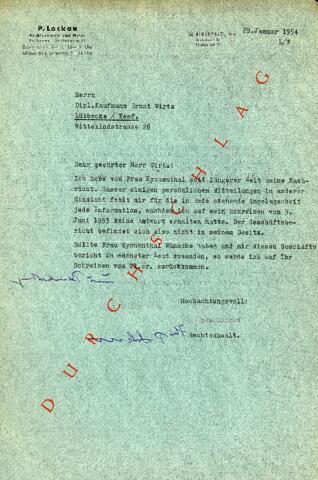 P. Lockau
Rechtsanwalt und Notar
BIELEFELD,
29. Januar 1954
L/
Herrn
Dipl.Kaufmann Ernst Wirtz
Lübbecke / Westf.
Wittekindstrasse 26
Sehr geehrter Herr Wirtz!
Ich habe von Frau Kychenthal seit längerer Zeit keine Nach-
richt. Ausser einigen persönlichen Mitteilungen in anderer
Hinsicht fehlt mir für die in Rede stehende Angelegenheit
jede Information, nachdem ich auf mein Schreiben vom 5.
Juni 1953 keine Antwort erhalten hatte. Der Geschäfts-
bericht befindet sich also nicht in meinem Besitz.
Sollte Frau Kychenthal Wünsche haben und mir diesen Geschäfts-
bericht in nächster Zeit zusenden, so werde ich auf Ihr
Schreiben vom cr. zurückkommen.
Hochachtungsvoll!
gez. Lockau
Rechtsanwalt.
DURCHSCHLAG